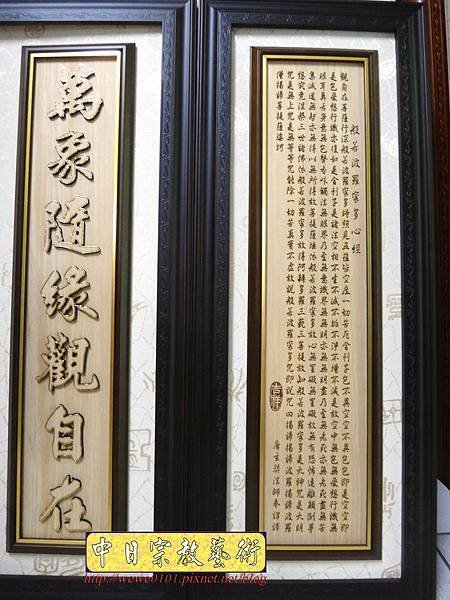 般若波羅蜜多心經
觀自在菩薩行深般若波羅蜜多時照見五蘊皆空度一切苦厄舍利子色不異空空不異色色即是空空即
是色受想行識亦復如是舍利子是諸法空相不生不滅不垢不淨不增不減是故空中無色無受想行識無
眼耳鼻舌身意無色聲香味觸法無眼界乃至無意識界無無明亦無無明盡乃至無老死亦無老死盡無苦
集滅道無智亦無得以無所得故菩提薩埵依般若波羅蜜多故心無罣礙無罣礙故無有恐怖遠離顛倒夢
想究竟涅槃三世諸佛依般若波羅蜜多故得阿耨多羅三藐三菩提故知般若波羅蜜多是大神咒是大明
咒是無上咒是無等等咒能除一切苦真實不虛故說般若波羅蜜多咒即說咒曰揭諦揭諦波羅揭諦波羅
僧揭諦菩提薩婆訶
唐玄奘法師奉詔譯
萬象隨緣觀自在
中日宗教藝術
http://wewe0101.pixnet.net/blog